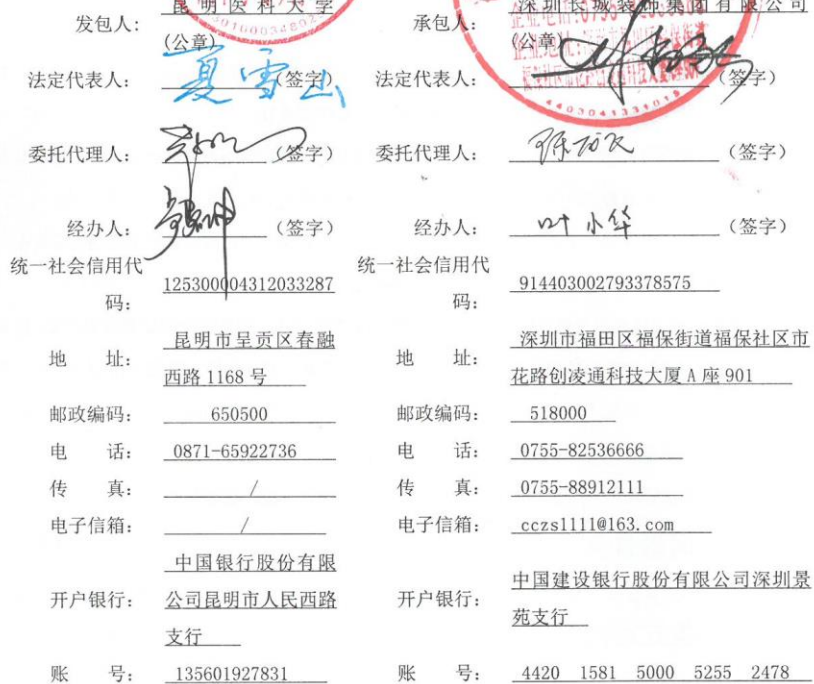 发包人: 昆明医科大学
(公章)
法定代表人: 夏雪山 (签字)
委托代理人: (签字)
经办人: (签字)
统一社会信用代码: 125300004312033287
地 址: 昆明市呈贡区春融
西路 1168 号
邮政编码: 650500
电 话: 0871-65922736
传 真: /
电子信箱: /
开户银行: 中国银行股份有限
公司昆明市人民西路
支行
账 号: 135601927831
承包人: 深圳长城装饰集团有限公司
(公章)
法定代表人: (签字)
委托代理人: (签字)
经办人: 叶小华 (签字)
统一社会信用代码: 914403002793378575
地 址: 深圳市福田区福保街道福保社区市
花路创凌通科技大厦 A 座 901
邮政编码: 518000
电 话: 0755-82536666
传 真: 0755-88912111
电子信箱: cczs1111@163.com
开户银行: 中国建设银行股份有限公司深圳景
苑支行
账 号: 4420 1581 5000 5255 2478